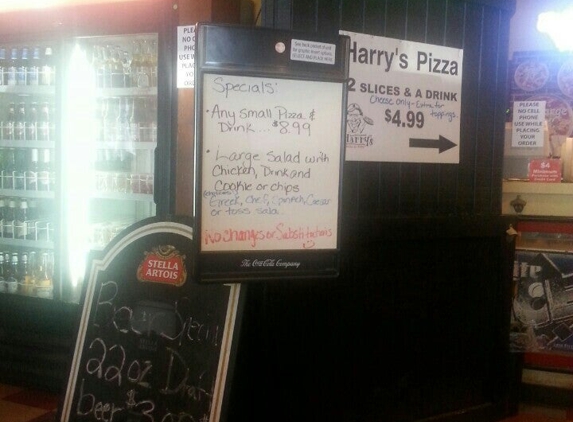 Specials:
• Any small Pizza &
Drink... $8.99
• Large Salad with
Chicken, Drink and
Cookie or chips
Greek, Chef, Spinach, Caesar
or toss salad
No changes or Substitutions
The Coca-Cola Company
Harry's Pizza
2 SLICES & A DRINK
Cheese only - Extra for
toppings
$4.99
Harry's
PLEASE
NO CELL
PHONE
USE WHILE
PLACING
YOUR
ORDER
$4
Minimum
STELLA
ARTOIS
22oz Draft
beer $3